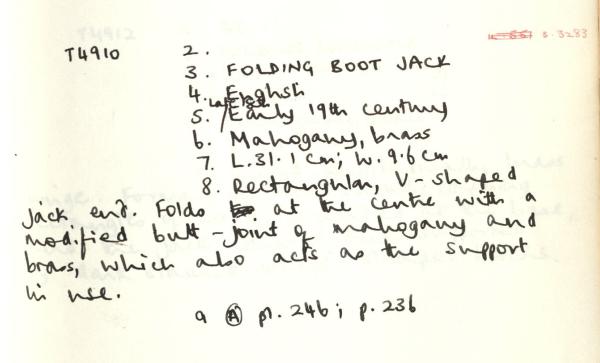 T4910 2. S.3283
3. FOLDING BOOT JACK
4. English
5. Late 18th / Early 19th century
6. Mahogany, brass
7. L.31.1 cm; W.9.6 cm
8. Rectanghlar, V-shaped
jack end. Folds at the centre with a
modified butt-joint of mahogany and
brass, which also acts as the support
in use.
9 (A) pl. 246; p. 236